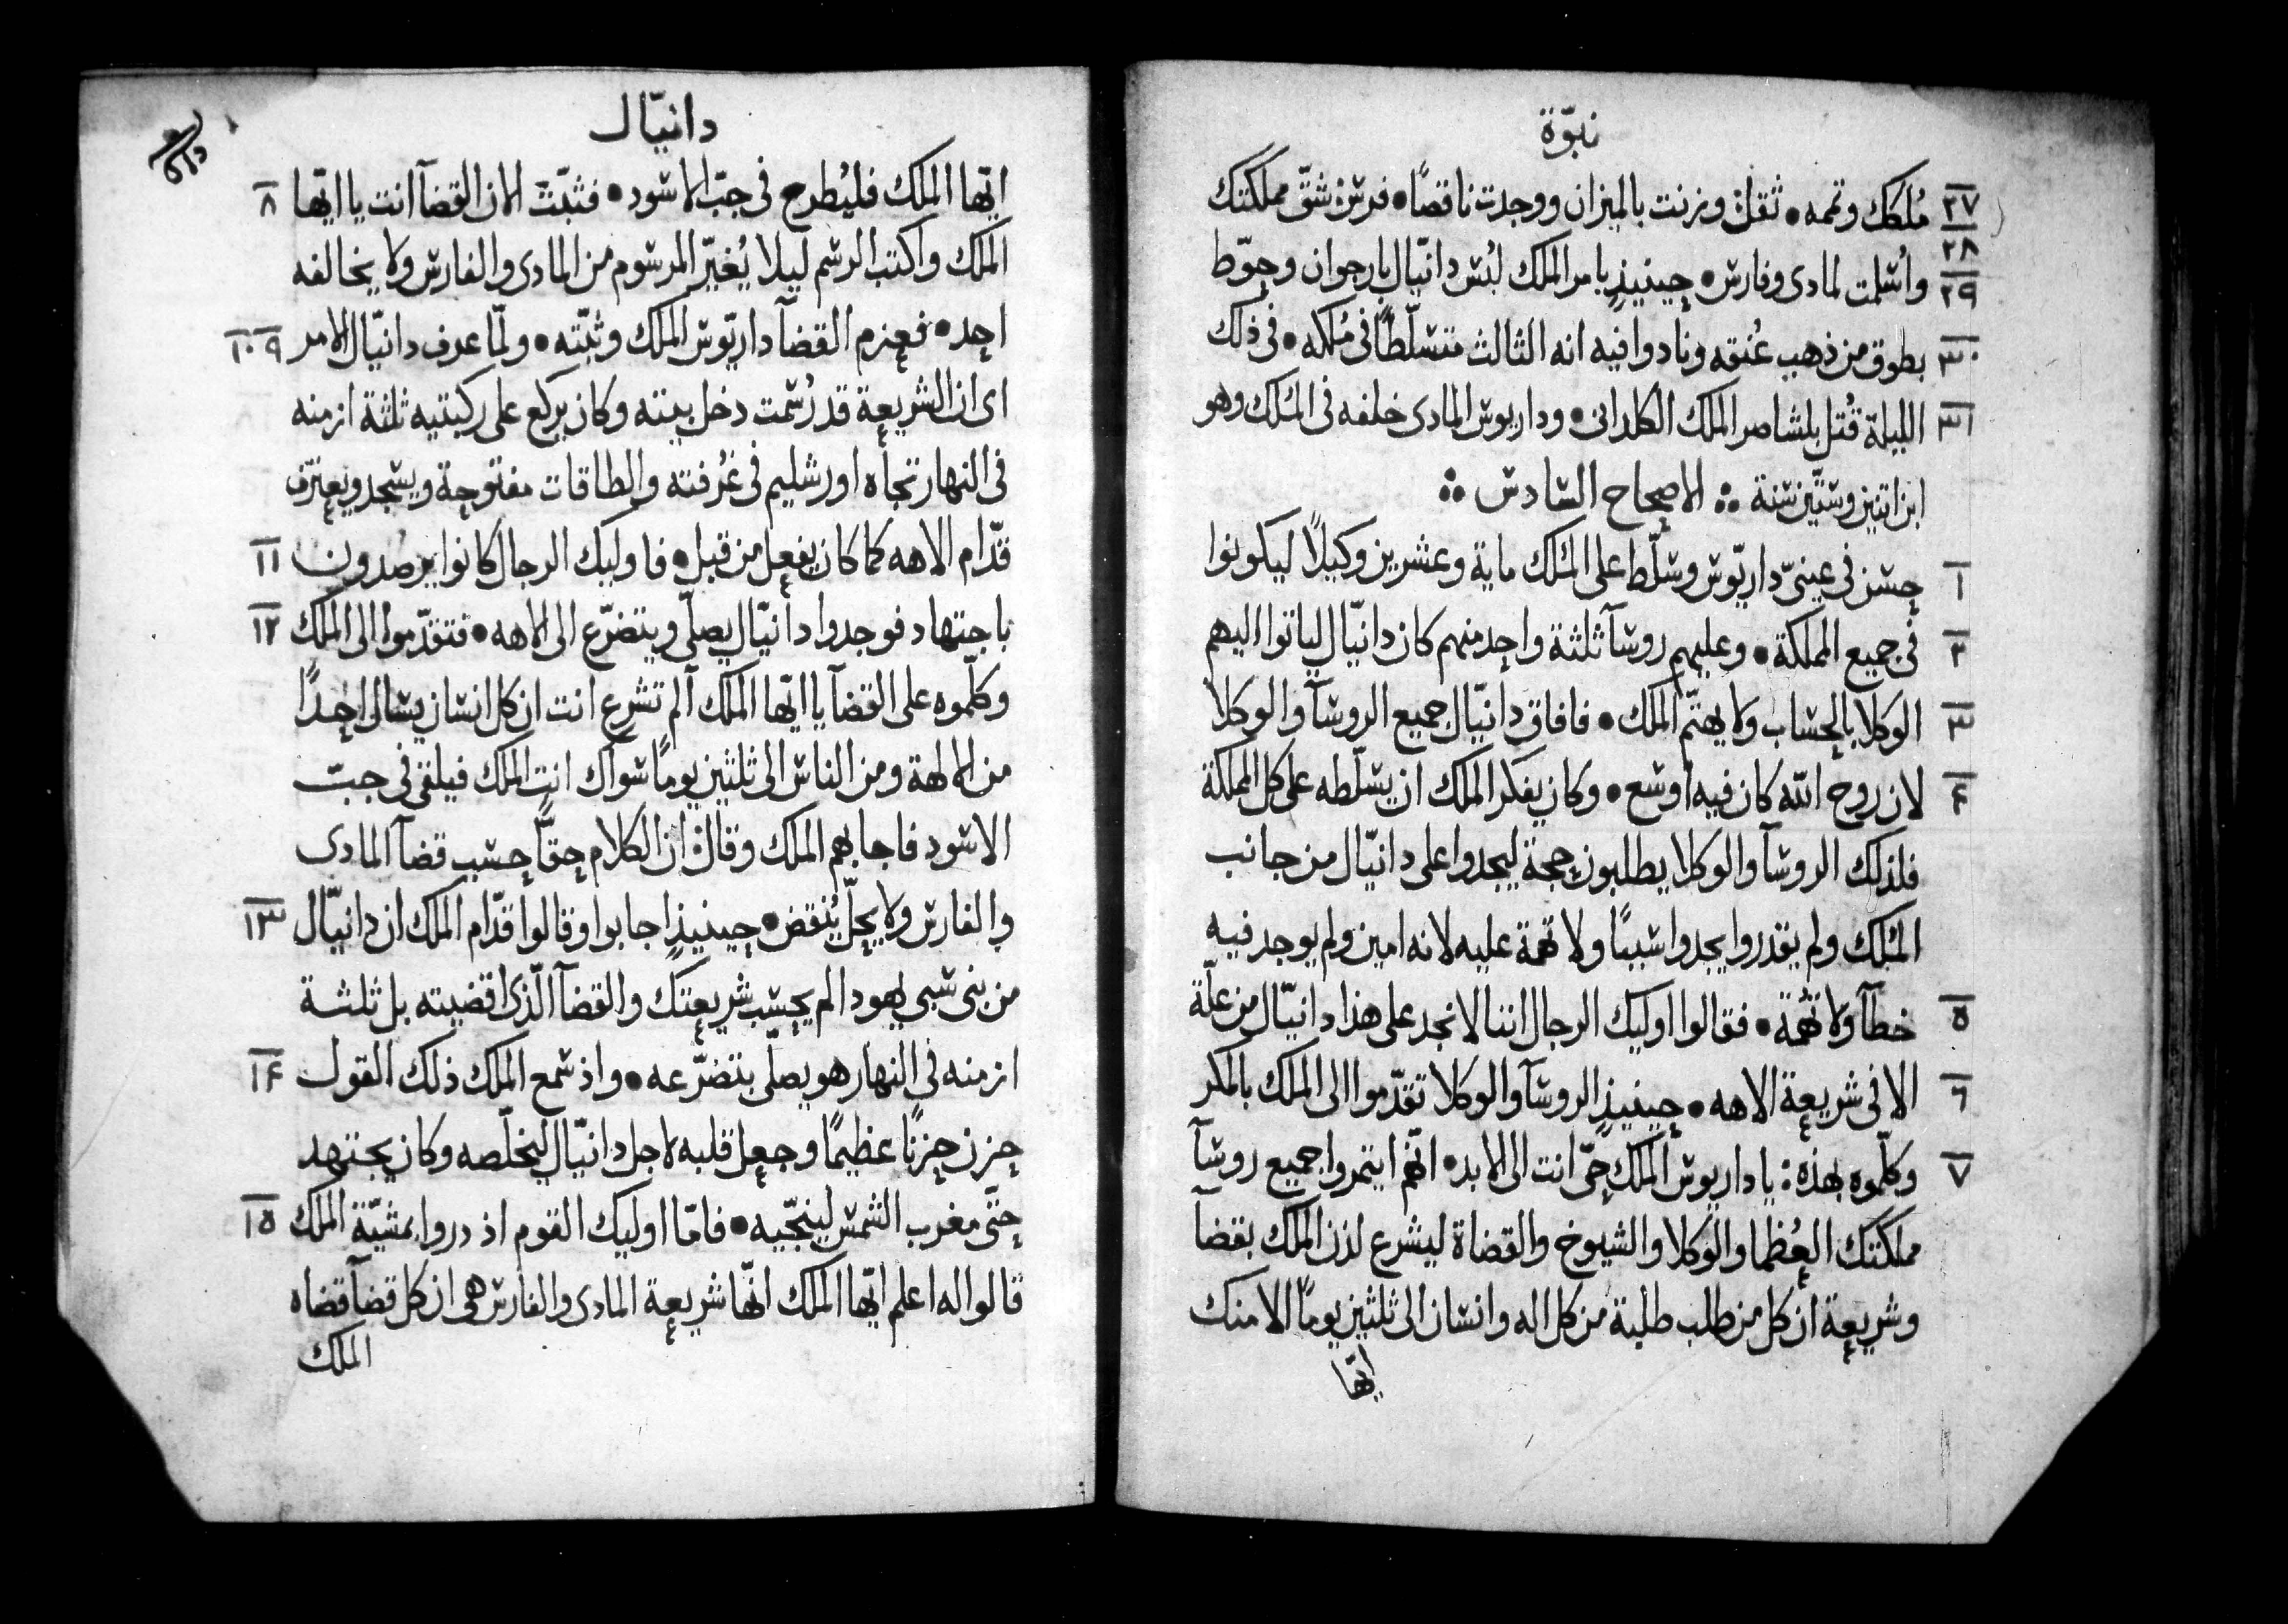 نبوّة
٢٧ مُلكك وتممه • ثقل: وزنت بالميزان ووجدت ناقصًا • فرس: شقّ مملكتك
٢٨
٢٩ واُسلمت لمادى وفارس • حينيذٍ بامر الملك لبُس دانيّال بارجوان وحوّط
٣٠ بطوق من ذهب عُنقه ونادوا فيه انه الثالث متسلّطًا فى مُلكه • فى ذلك
٣١ الليلة قُتل بلشاصر الملك الكلدانى • وداريوس المادى خلفه فى المُلك وهو
ابن اتنين وستّين سنة ჻ الاصحاح السادس ჻
١ حسن فى عينىّ داريّوس وسلّط على المُلك ماية وعشرين وكيلاً ليكونوا
٢ فى جميع المملكة • وعليهم روسآ ثلثة واحد منهم كان دانيّال لياتوا اليهم
٣ الوكلا بالحساب ولا يهتمّ الملك • فافاق دانيّال جميع الروسآ والوكلا
۴ لان روح الله كان فيه اوسع • وكان يفكر الملك ان يسلّطه على كل المملكة
فلذلك الروسآ والوكلا يطلبون حجة ليجدوا على دانيّال من جانب
المُلك ولم يقدروا يجدوا سببًا ولا تهمة عليه لانه امين ولم يوجد فيه
٥ خطآ ولا تُهمة • فقالوا اوليك الرجال اننا لا نجد على هذا دانيّال من علّة
٦ الا فى شريعة الاهه • حينيذٍ الروسآ والوكلا تقدّموا الى الملك بالمكر
٧ وكلّموه بهذه: يا داريوس الملك حىّ انت الى الابد • انّهم ايتمروا جميع روسآ
مملكتك العُظما والوكلا والشيوخ والقضاة ليشرع لذن الملك بقضآ
وشريعة ان كل من طلب طلبة من كل اله وانسان الى ثلثين يومًا الا منك
ايّها
دانيّال
٨ ايّها الملك فليُطرح فى جبّ الاسود • فثبّت الان القضآ انت يا ايّها
الملك واكتب الرسم ليلا يُغيّر المرسوم من المادى والفارس ولا يخالفه
٩ ١٠ احد • فعزم القضآ داريّوس الملك وثبّته • ولمّا عرف دانيّال الامر
اى ان الشريعة قد رُسمت دخل بيته وكان يركع على ركبتيه ثلثة ازمنه
فى النهار تجاه اورشليم فى غُرفته والطاقات مفتوحة ويسجد ويعترف
١١ قدّام الاهه كما كان يفعل من قبل • فاوليك الرجال كانوا يرصدون
١٢ باجتهاد فوجدوا دانيّال يصلّى ويتضرّع الى الاهه • فتقدّموا الى الملك
وكلّموه على القضآ يا ايّها الملك آلم تشرع انت ان كل انسان يسال احدًا
من الالهة ومن الناس الى ثلثين يومًا سواك انت الملك فيلقى فى جبّ
الاسود فاجابهم الملك وقال: ان الكلام حقّاً حسب قضآ المادى
١٣ والفارس ولا يحلّ يُنقض • حينيذٍ اجابوا وقالوا قدّام الملك ان دانيّال
من بنى سبى يهودا لم يحسب شريعتك والقضآ الّذى اقضيته بل ثلثة
١۴ ازمنه فى النهار هو يصلّى بتضرّعه • واذ سمع الملك ذلك القول
حزن حزنًا عظيمًا وجعل قلبه لاجل دانيّال ليخلّصه وكان يجتهد
١٥ حتّى مغرب الشمس لينجّيه • فامّا اوليك القوم اذ دروا بمشيّة الملك
قالوا له اعلم ايّها الملك انّها شريعة المادى والفارس هى ان كل قضآ قضاه
الملك